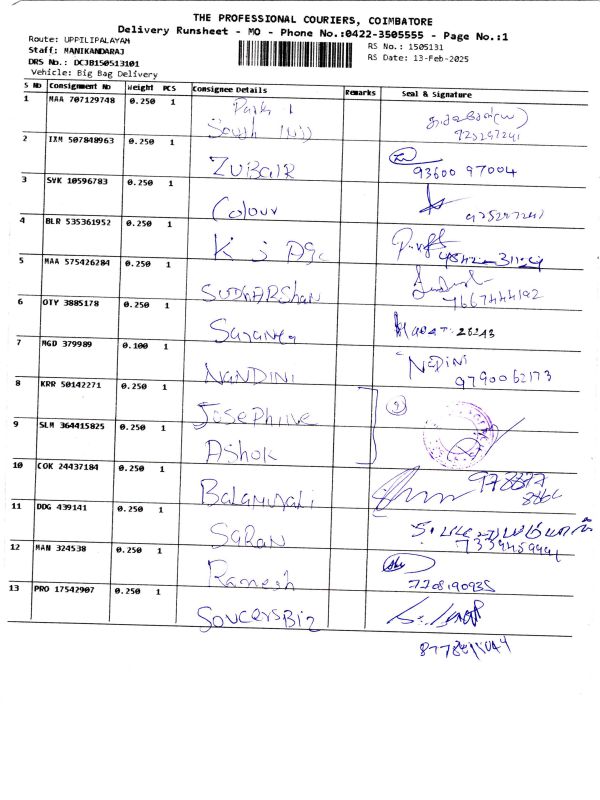 THE PROFESSIONAL COURIERS, COIMBATORE
Delivery Runsheet - MO - Phone No.:0422-3505555 - Page No.:1
Route: UPPILIPALAYAM
RS No. : 1505131
Staff: MANIKANDARAJ
RS Date: 13-Feb-2025
DRS No.: DCJB150513101
Vehicle: Big Bag Delivery
S No Consignment No Weight PCS Consignee Details Remarks Seal & Signature
1 MAA 707129748 0.250 1 Park 1
South
2 IXM 507848963 0.250 1 ZUBAIR 93600 97004
3 SVK 10596783 0.250 1 Colour
4 BLR 535361952 0.250 1 K J
5 MAA 575426284 0.250 1 SUDHARShan 7667444192
6 OTY 3885178 0.250 1
7 MGD 379989 0.100 1 NANDINI 9790062173
8 KRR 50142271 0.250 1 Josephine
9 SLM 364415825 0.250 1 Ashok
10 COK 24437184 0.250 1 Balamurali
11 DDG 439141 0.250 1 SaRan
12 MAN 324538 0.250 1 Ramesh 7708190935
13 PRO 17542907 0.250 1 SoucersBiz